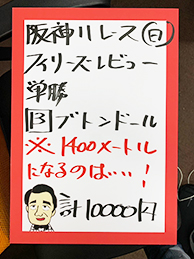 阪神11レース(日)
フィリーズレビュー
単勝
13 ブトンドール
※1400メートル
になるのは……!
計10000円